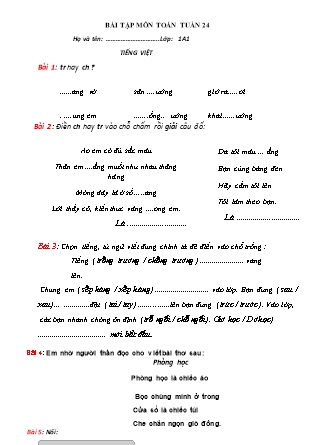 BÀI TẬP MÔN TOÁN TUẦN 24
Họ và tên: ..............................Lớp: 1A1
TIẾNG VIỆT
Bài 1: tr hay ch ?
......ang vở sân .....ường giơ ra.....ơi
......ung em .......ống.. ường khai......ường
Bài 2: Điền ch hay tr vào chỗ chấm rồi giải câu đố:
Áo em có đủ sắc màu
Thân em ....ắng muốt như nhau thẳng
hàng
Mỏng dày là ở số.....ang
Lời thầy cô, kiến thức vàng ....ong em.
Là ...................
Da tôi màu ... ắng
Bạn cùng bảng đen
Hãy cầm tôi lên
Tôi làm theo bạn.
Là .....................
Bài 3: Chọn tiếng, từ ngữ viết đúng chính tả để điền vào chỗ trống :
Tiếng ( trống trường / chống trương ) ............... vang
lên.
Chúng em ( sếp hàng / xếp hàng) ................... vào lớp. Bạn đứng ( sau /
xau)... ............đặt ( tai / tay) ............lên bạn đứng ( trức / trước). Vào lớp,
các bạn nhanh chóng ổn định ( trỗ ngồi / chỗ ngồi). Giờ học / Dờ học)
........................ mới bắt đầu.
Bài 4: Em nhờ người thân đọc cho viết bài thơ sau:
Phòng học
Phòng học là chiếc áo
Bọc chúng mình ở trong
Cửa sổ là chiếc túi
Che chắn ngọn gió đông.
Bài 5: Nối: